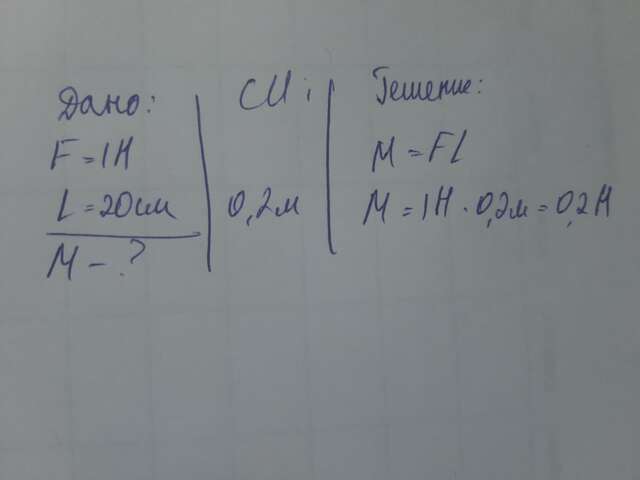 Дано:
F = 1Н
L = 20см
М - ?
СИ:
0,2м
Решение:
М = FL
М = 1Н · 0,2м = 0,2Н